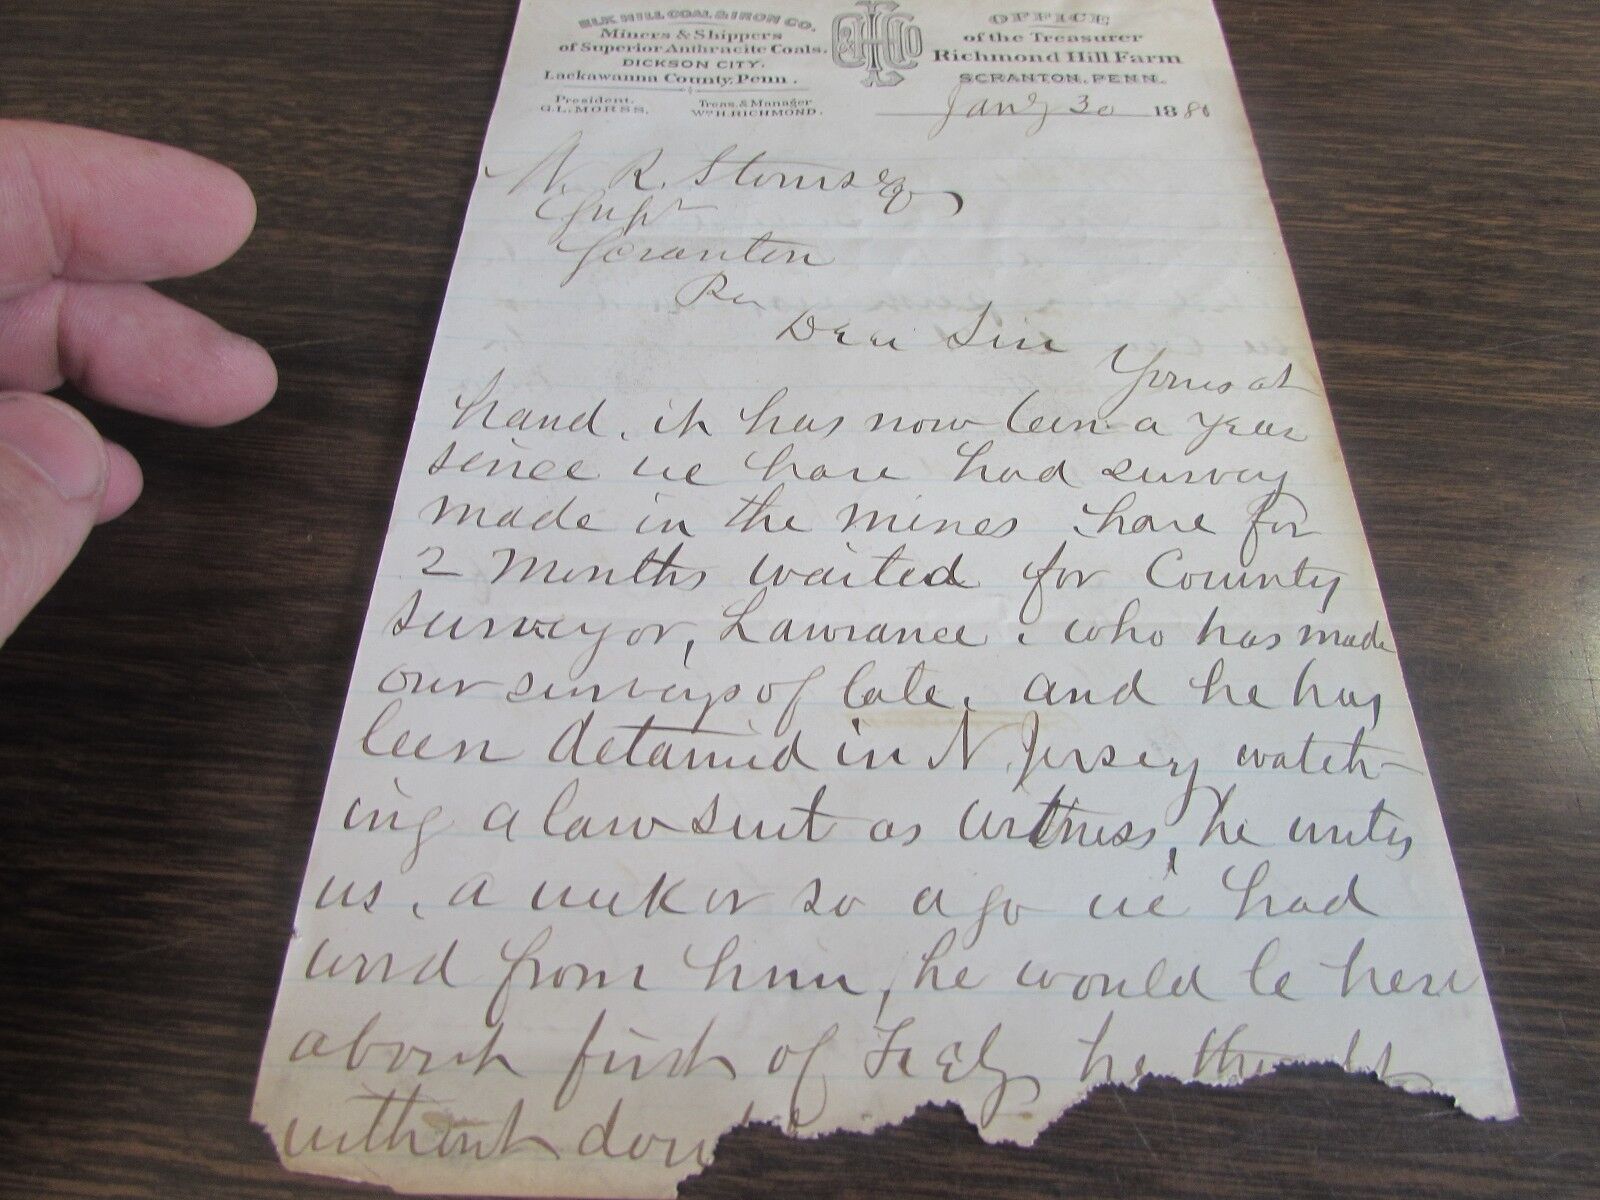 ELK HILL COAL & IRON CO.
Miners & Shippers
of Superior Anthracite Coals.
DICKSON CITY.
Lackawanna County, Penn.
President.
G.L. MORSS.
Treas. & Manager
Wm H. RICHMOND.
OFFICE
of the Treasurer
Richmond Hill Farm
SCRANTON, PENN.
Jany 30 1880
W. R. Storrs esq
Supt
Scranton
Pa
Dear Sir
Yours at
hand, it has now been a year
since we have had survey
made in the mines have for
2 months waited for County
surveyor, Lawrance. who has made
our surveys of late. and he has
been detained in N Jersey watch-
ing a law suit as witness, he writes
us, a week or so ago we had
word from him, he would be here
about first of Feby he thought
without